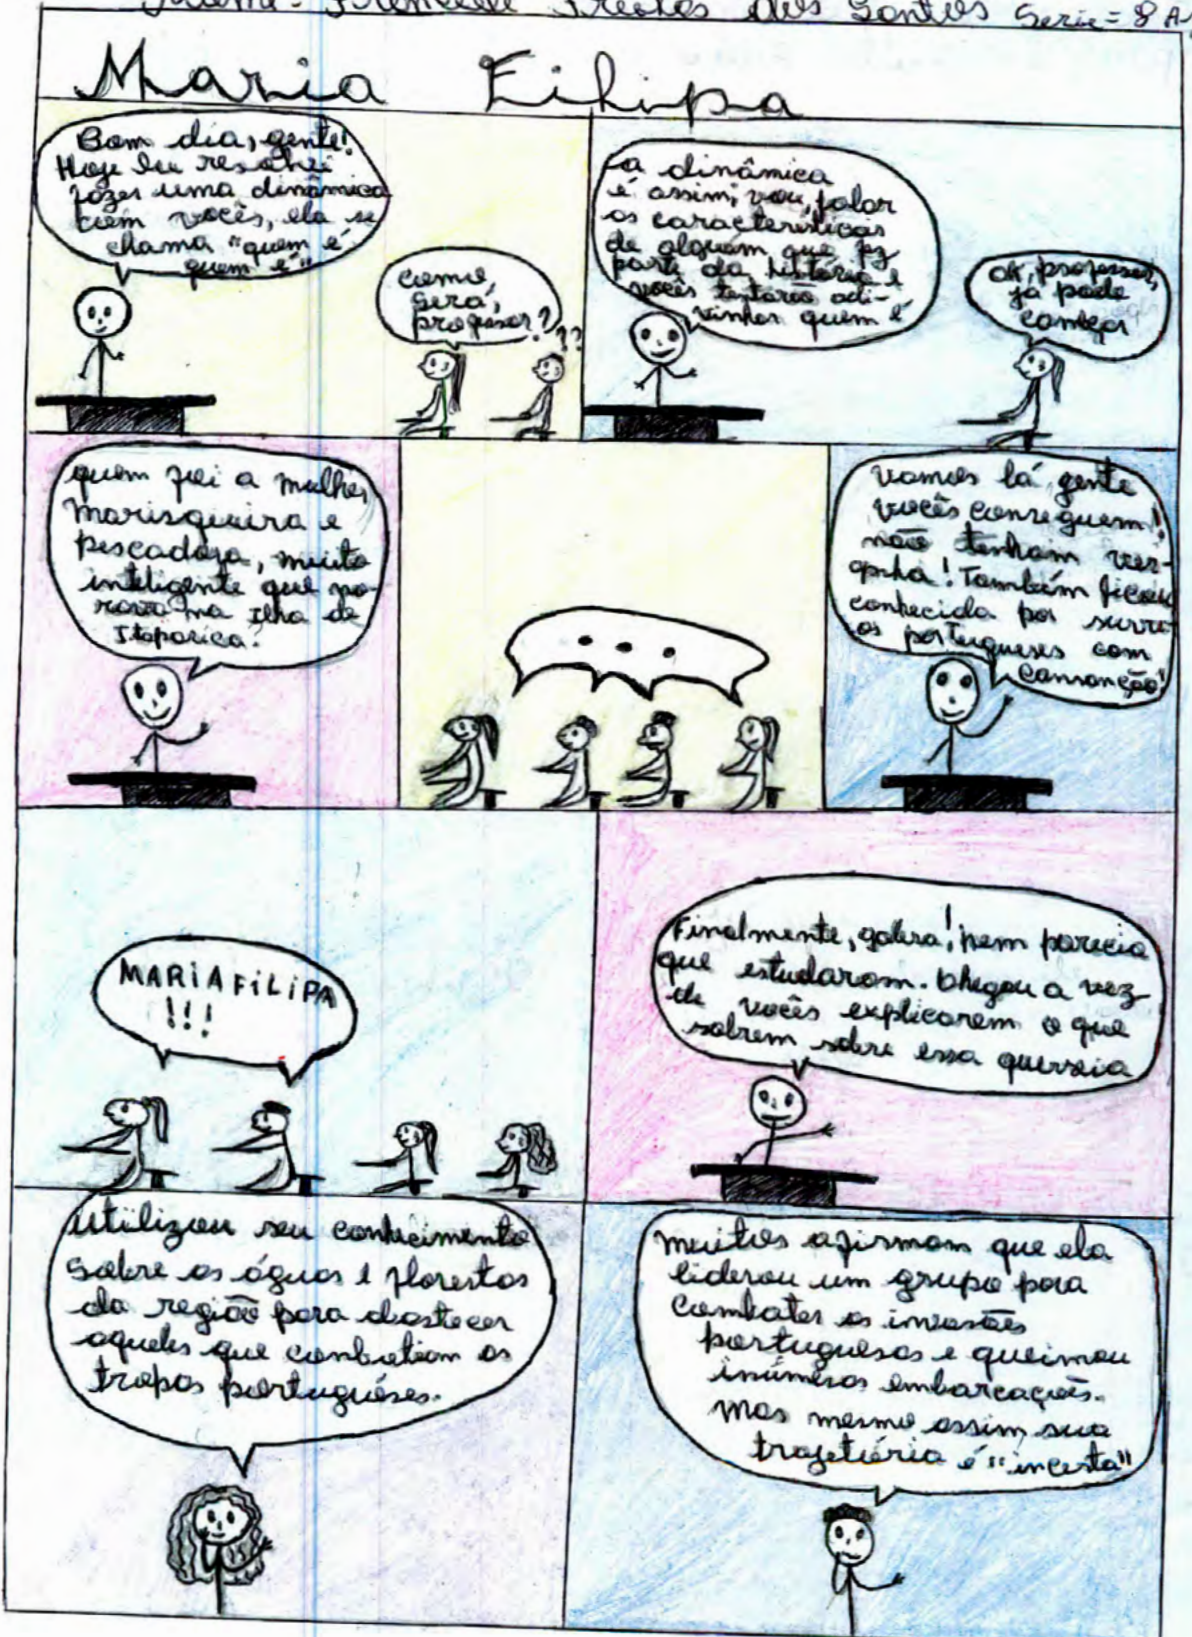 dos Santos Serie = 8 A
Maria Filipa
Bom dia, gente!
Hoje eu resolvi
fazer uma dinâmica
com vocês, ela se
chama "quem é
quem é"
como,
será,
professor?
??
a dinâmica
é assim, vou, falar
as características
de alguém que fez
parte da história e
vocês tentarão adi-
vinhar quem é
ok, professor,
já pode
começar
quem foi a mulher,
marisqueira e
pescadora, muito
inteligente que mo-
rava na Ilha de
Itaparica?
...
vamos lá gente
vocês conseguem!
não tenham ver-
gonha! Também ficou
conhecida por surrar
os portugueses com
cansanção!
MARIA FILIPA
!!!
Finalmente, galera! nem parecia
que estudaram. Chegou a vez
de vocês explicarem o que
sabem sobre essa
utilizou seu conhecimento
sobre as águas e florestas
da região para abastecer
aqueles que combatiam as
tropas portuguêses.
muitos afirmam que ela
liderou um grupo para
combater as invasões
portuguesas e queimou
inúmeras embarcações.
mas mesmo assim, sua
trajetória é "incerta"